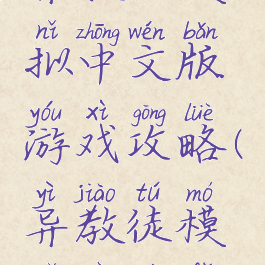 nǐ zhōng wén bǎn
拟中文版
yóu xì gōng lüè
游戏攻略(
yì jiào tú mó
异教徒模